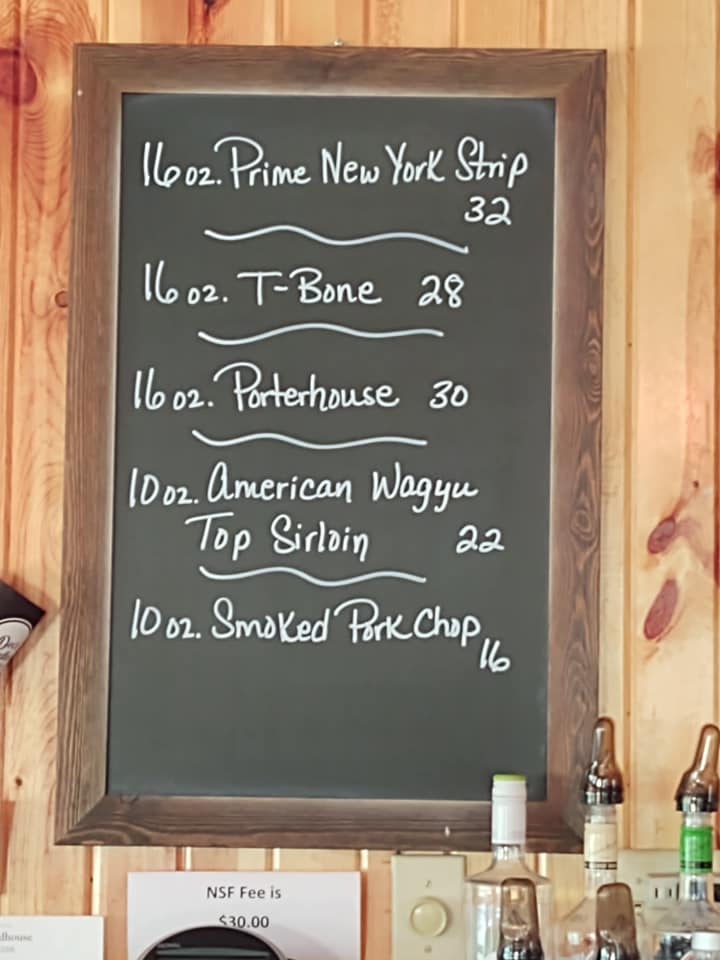 16 oz. Prime New York Strip
32
16 oz. T-Bone 28
16 oz. Porterhouse 30
10 oz. American Wagyu
Top Sirloin 22
10 oz. Smoked Pork Chop
16
NSF Fee is
$30.00